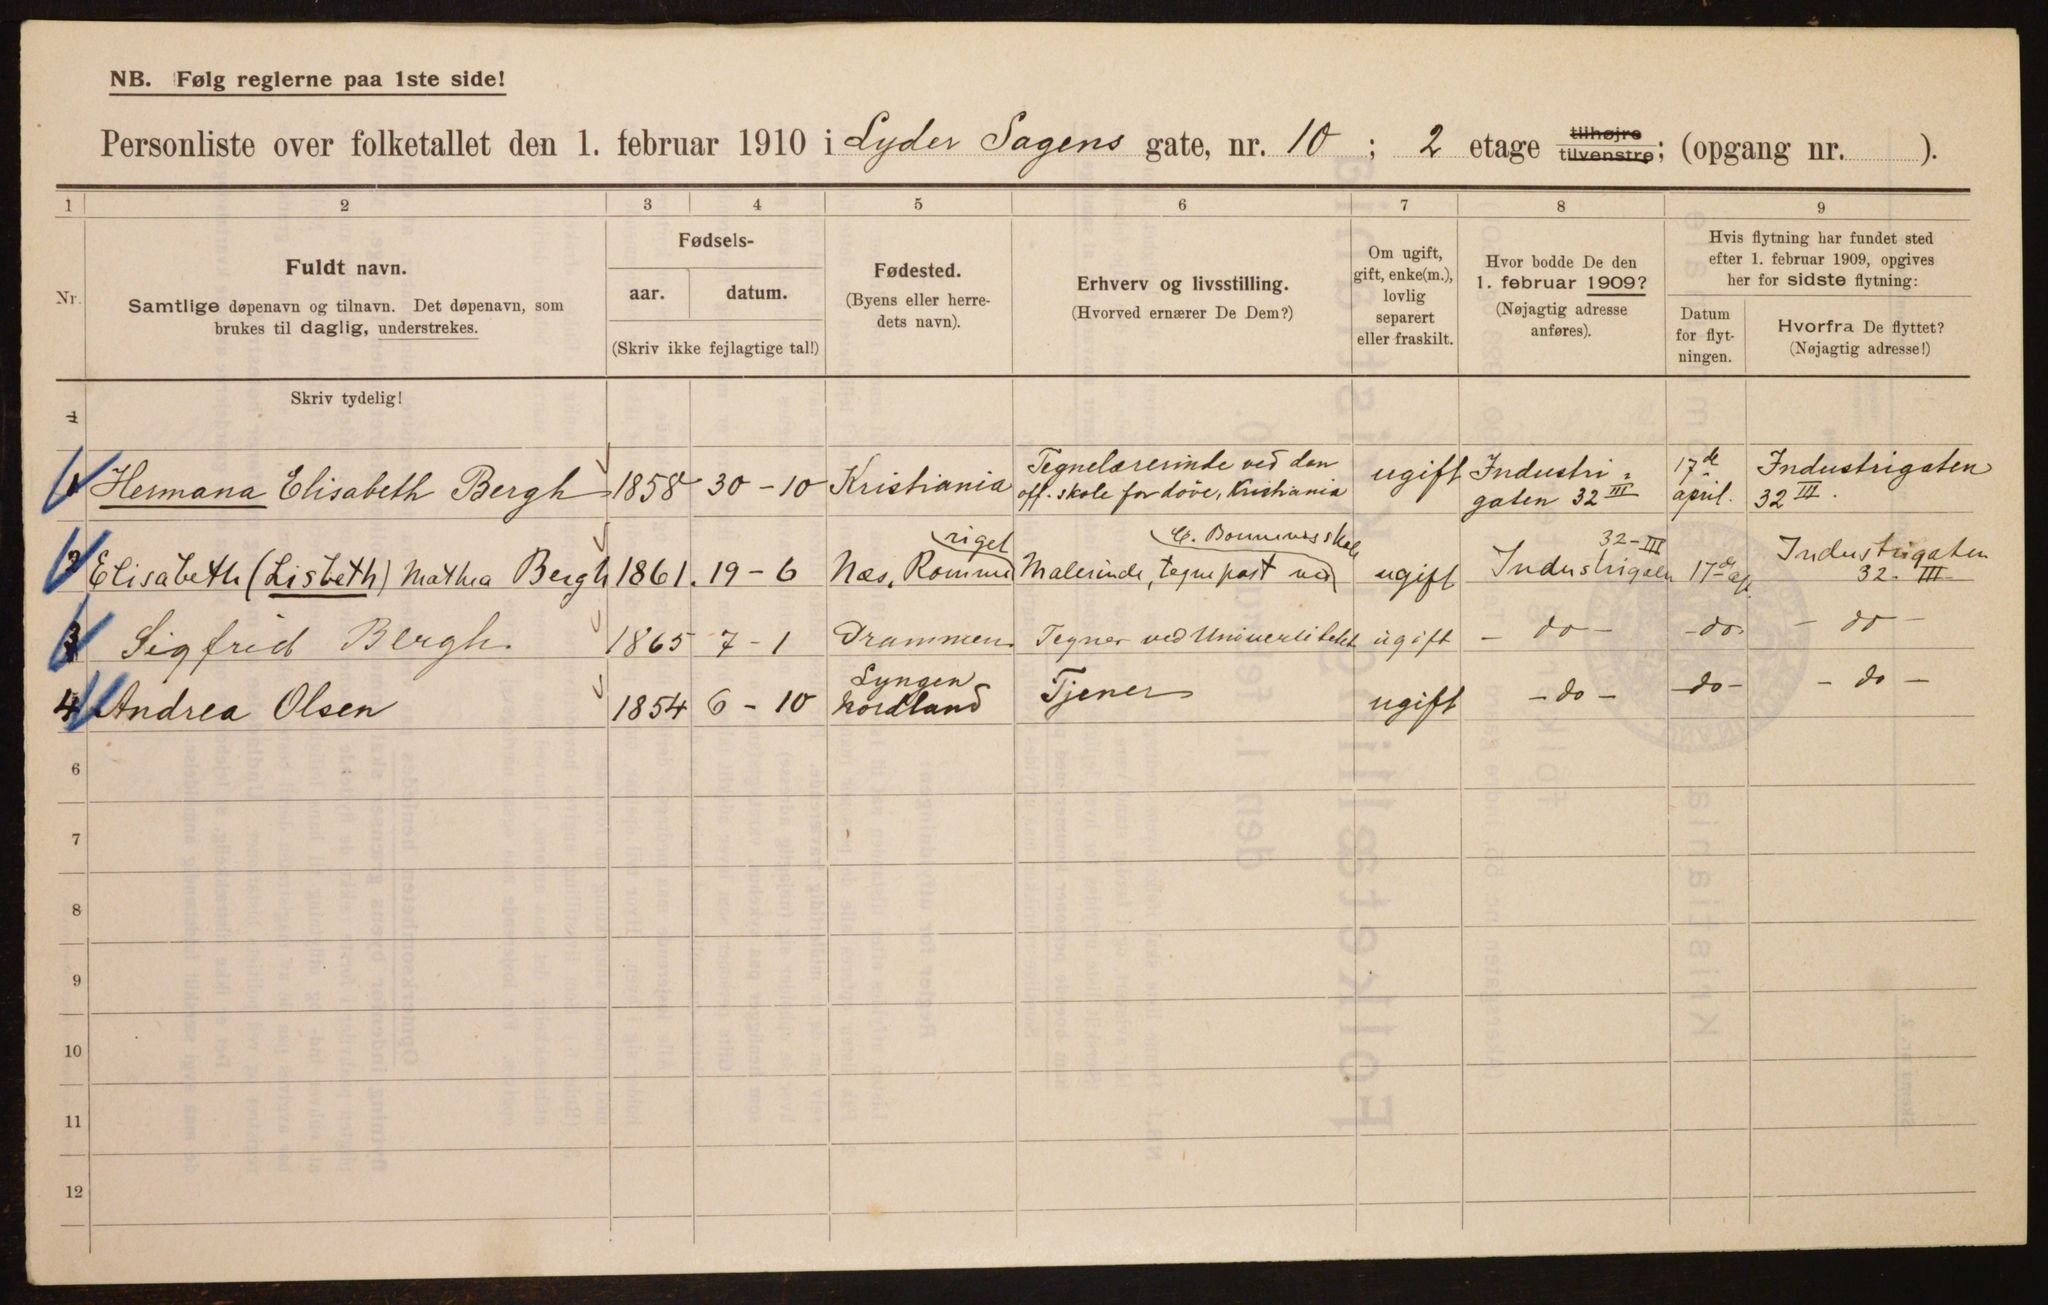 NB. Følg reglerne paa 1ste side!
Personliste over folketallet den 1. februar 1910 i Lyder Sagens gate, nr. 10 ; 2 etage tilhøjre tilvenstre; (opgang nr. ).
1 2 3 4 5 6 7 8 9
Nr.
Fuldt navn.
Samtlige døpenavn og tilnavn. Det døpenavn, som
brukes til daglig, understrekes.
Fødsels-
aar. datum.
(Skriv ikke fejlagtige tal!)
Fødested.
(Byens eller herre-
dets navn).
Erhverv og livsstilling.
(Hvorved ernærer De Dem?)
Om ugift,
gift, enke(m.),
lovlig
separert
eller fraskilt.
Hvor bodde De den
1. februar 1909?
(Nøjagtig adresse
anføres).
Hvis flytning har fundet sted
efter 1. februar 1909, opgives
her for sidste flytning:
Datum
for flyt-
ningen.
Hvorfra De flyttet?
(Nøjagtig adresse!)
Skriv tydelig!
1
1 Hermana Elisabeth Bergh 1858 30-10 Kristiania Tegnelærerinde ved den
off. skole for døve, Kristiania ugift Industri-
gaten 32 III 17de
april. Industrigaten
32 III.
2 Elisabeth (Lisbeth) Mathea Bergh 1861. 19-6 Næs, Romme
riget Malerinde, tegnepost ved
ugift Industrigaten
32-III 17de ap. Industrigaten
32. III
3 Sigfrid Bergh. 1865 7-1 Drammen Tegner ved Universitetet ugift - do - -do- - do -
4 Andrea Olsen 1854 6-10 Lyngen
Nordland Tjener ugift - do - -do- - do -
6
7
8
9
10
11
12